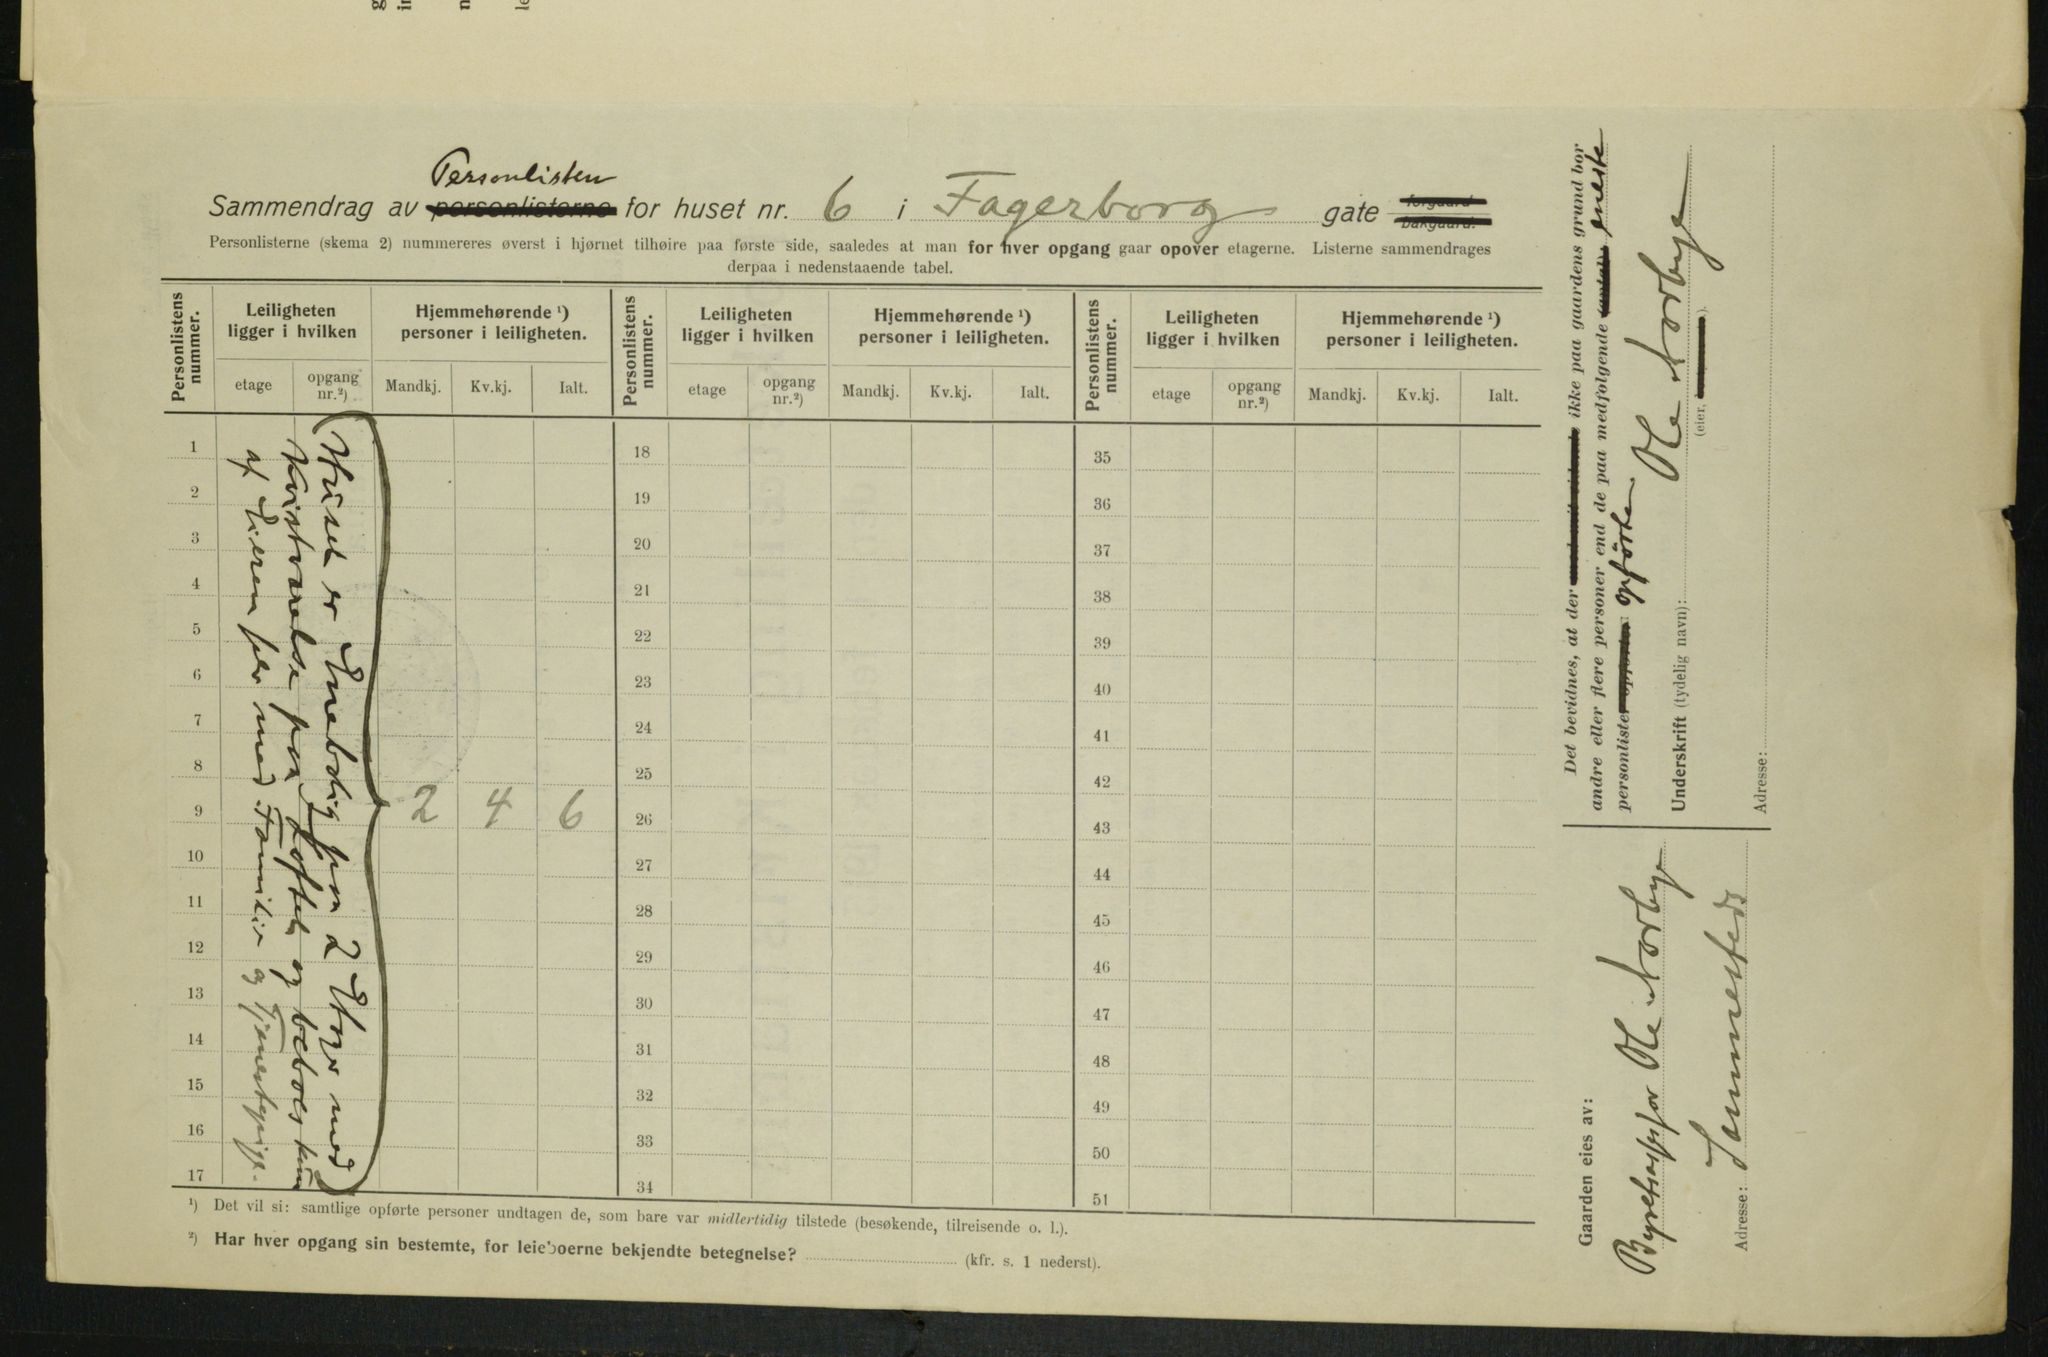 Personlisten
Sammendrag av personlisterne for huset nr. 6 i Fagerborg gate forgaard bakgaard.
Personlisterne (skema 2) nummereres øverst i hjørnet tilhøire paa første side, saaledes at man for hver opgang gaar opover etagerne. Listerne sammendrages
derpaa i nedenstaaende tabel.
Personlistens nummer. Leiligheten ligger i hvilken Hjemmehørende ¹) personer i leiligheten. Personlistens nummer. Leiligheten ligger i hvilken Hjemmehørende ¹) personer i leiligheten. Personlistens nummer. Leiligheten ligger i hvilken Hjemmehørende ¹) personer i leiligheten.
etage opgang nr.²) Mandkj. Kv.kj. Ialt. etage opgang nr.²) Mandkj. Kv.kj. Ialt. etage opgang nr.²) Mandkj. Kv.kj. Ialt.
1 18 35
2 19 36
3 20 37
4 21 38
5 22 39
6 23 40
7 24 41
8 25 42
9 2 4 6 26 43
10 27 44
11 28 45
12 29 46
13 30 47
14 31 48
15 32 49
16 33 50
17 34 51
(Huset er Enebolig paa 2 Etager med
Kvistværelse paa Loftet og beboes kun
af Eieren selv med Familie og Tjenestepige.
¹) Det vil si: samtlige opførte personer undtagen de, som bare var midlertidig tilstede (besøkende, tilreisende o. l.).
²) Har hver opgang sin bestemte, for leieboerne bekjendte betegnelse? (kfr. s. 1 nederst).
Det bevidnes, at der ikke paa gaardens grund bor
andre eller flere personer end de paa medfølgende (antal) eneste
personlister opførte opførte.
Underskrift (tydelig navn): Ole Norbye
(eier, ).
Adresse:
Gaarden eies av:
Byretsassessor Ole Norbye
Adresse: Sammesteds